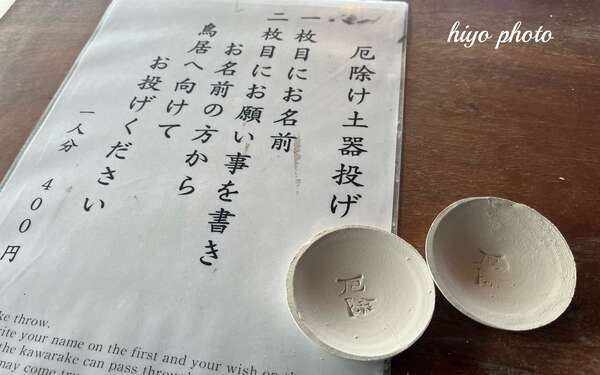 hiyo photo
厄除け土器投げ
一枚目にお名前
二枚目にお願い事を書き
お名前の方から
鳥居へ向けて
お投げください
一人分 400円
ke throw.
rite your name on the first and your wish on th
the kawarake can pass throu
may come tru
厄除
厄除